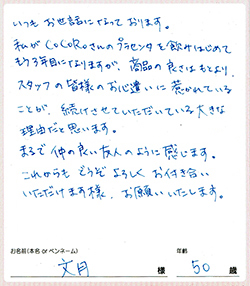 いつもお世話になっております。
私がCoCoRoさんのプラセンタを飲みはじめて
もう3年目になりますが、商品の良さはもとより、
スタッフの皆様のお心遣いに惹かれている
ことが、続けさせていただいている大きな
理由だと思います。
まるで仲の良い友人のように感じます。
これからもどうぞよろしくお付き合い
いただけます様、お願いいたします。
お名前(本名 or ペンネーム) 年齢
文月 様 50 歳